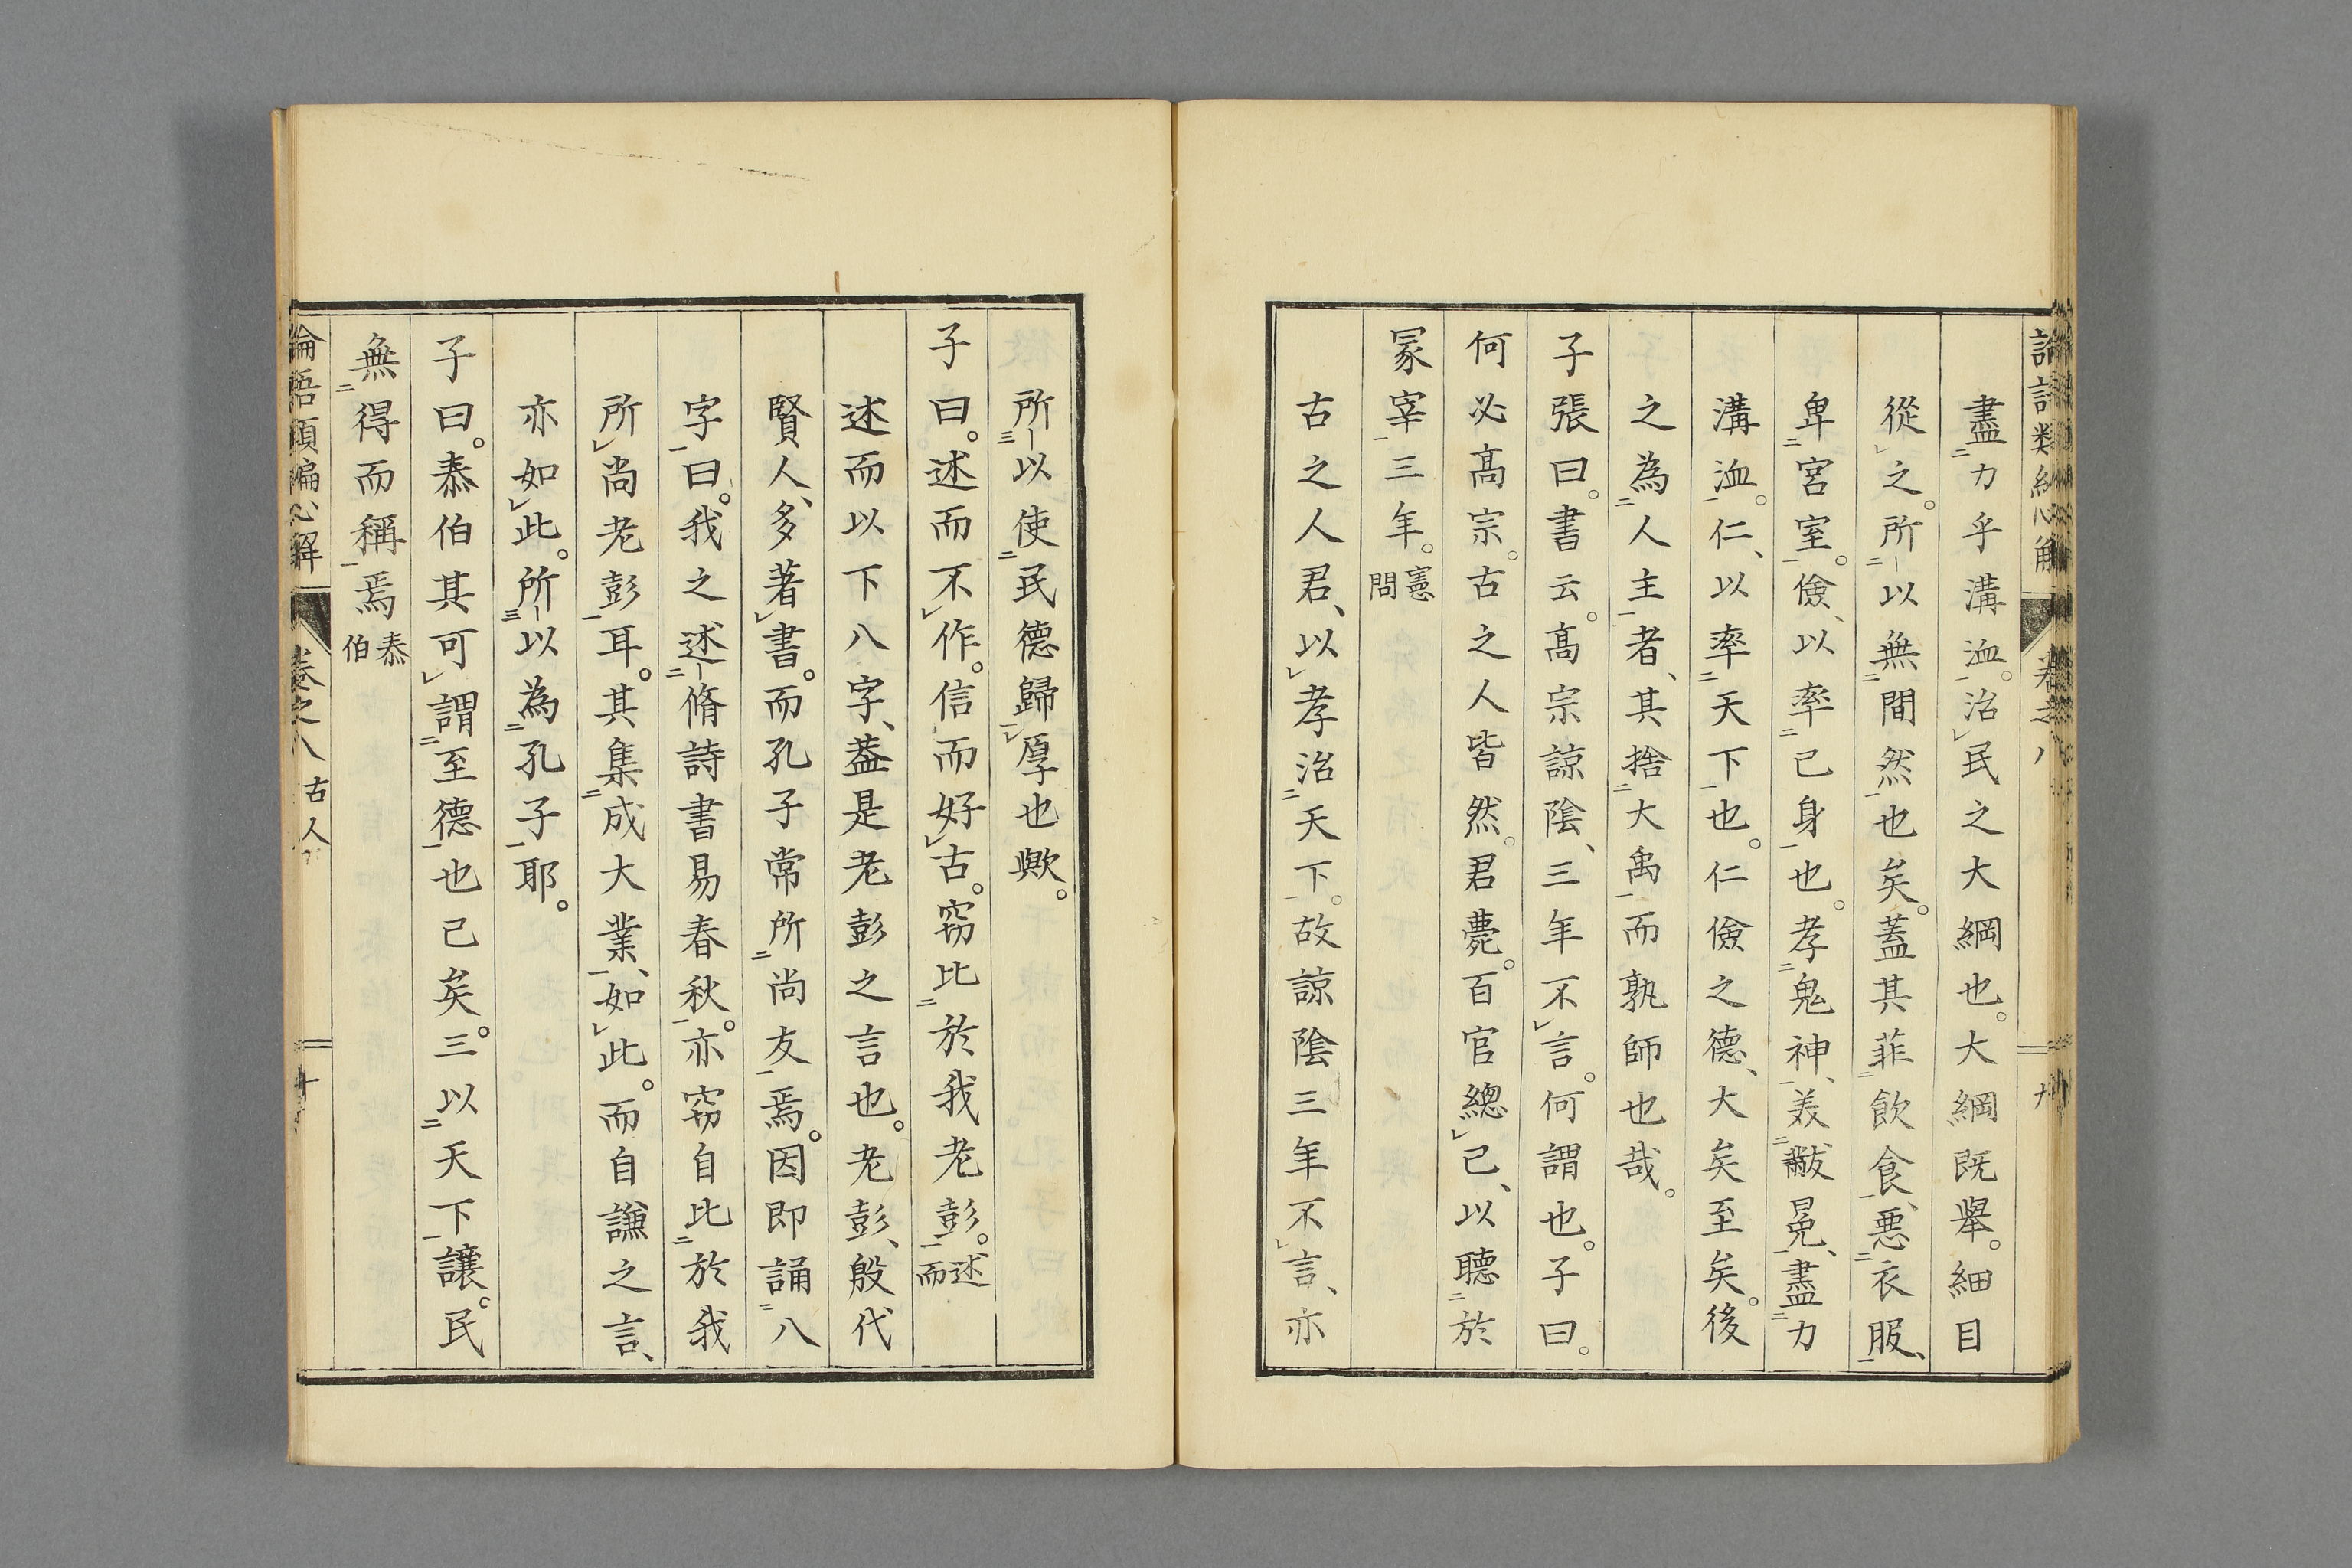 盡二力乎溝洫一。治レ民之大綱也。大綱既舉。細目
從レ之。所二-以無二間然一也矣。蓋其菲二飲食一、惡二衣服一、
卑二宮室一。儉、以率二己身一也。孝二鬼神一、美二黻冕一、盡二力
溝洫一。仁、以率二天下一也。仁儉之德、大矣至矣。後
之為二人主一者、其捨二大禹一而孰師也哉。
子張曰。書云。高宗諒陰、三年不レ言。何謂也。子曰。
何必高宗。古之人皆然。君薨。百官總レ己、以聽二於
冢宰一三年。憲問
古之人君、以レ孝治二天下一。故諒陰三年不レ言、亦
所三-以使二民德歸一レ厚也歟。
子曰。述而不レ作。信而好レ古。竊比二於我老彭一。述而
述而以下八字、蓋是老彭之言也。老彭、殷代
賢人、多著レ書。而孔子常所二尚友一焉。因即誦二八
字一曰。我之述二-脩詩書易春秋一。亦竊自比二於我
所レ尚老彭一耳。其集二成大業一、如レ此。而自謙之言、
亦如レ此。所三-以為二孔子一耶。
子曰。泰伯其可レ謂二至德一也已矣。三以二天下一讓。民
無二得而稱一焉泰伯
論語類編心解 卷之八 古人 十